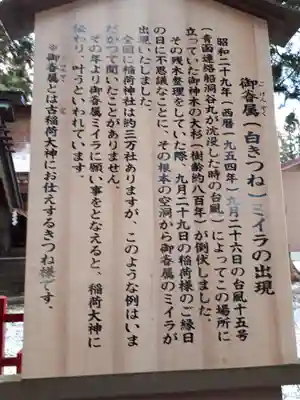 御眷属(白きつね)ミイラの出現
昭和二十九年(西暦一九五四年)九月二十六日の台風十五号
(青函連絡船洞爺丸が沈没した時の台風)によってこの場所に
立っていた御神木の大杉(樹齢約八百年)が倒伏しました。
その残木整理をしていた際、九月二十九日の稲荷様のご縁日
の日に不思議なことに、その根本の空洞から御眷属のミイラが
出現いたしました。
全国に稲荷神社は約三万社ありますが、このような例はいま
だかつて聞いたことがありません。
その年より御眷属ミイラに願い事をとなえると、稲荷大神に
伝わり、叶うといわれています。
※御眷属とは古稲荷大神にお仕えするきつね様です。